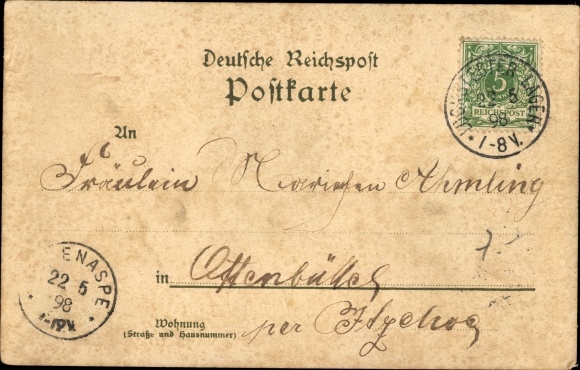 Deutsche Reichspost
Postkarte
5
REICHSPOST
LOCKSTEDTER LAGER
22 5
98
* 1-8V. *
An
Fräulein Mariechen Ahmling
in Ottenbüttel
Wohnung
(Straße und Hausnummer)
per Itzehoe
ENASPE
22 5
98